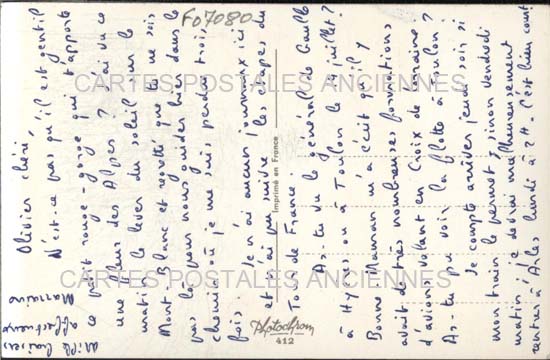 F07080
Olivier chéri
N'est-ce pas qu'il est gentil
ce petit rouge-gorge qui t'apporte
une fleur des Alpes ? J'ai vu ce
matin le lever du soleil sur le
Mont Blanc et regretté que tu ne sois
pas là pour nous guider hier dans le
chemin où je me suis perdue trois
fois. Je n'ai aucun journaux ici
et n'ai pu suivre les étapes du
Tour de France.
As-tu vu le général de Gaulle
à Hyères ou à Toulon le 14 juillet ?
Bonne Maman m'a écrit qu'il y
avait de très nombreuses formations
d'avions volant en Croix de Lorraine
As-tu pu voir la flotte à Toulon ?
Je compte arriver jeudi soir si
mon train le permet, sinon vendredi
matin, je devrai malheureusement
rentrer à Arles lundi à 2H - C'est bien court
Mille baisers
affectueux
Marraine
Imprimé en France
Photochrom
412
CARTES POSTALES ANCIENNES
CARTES POSTALES ANCIENNES